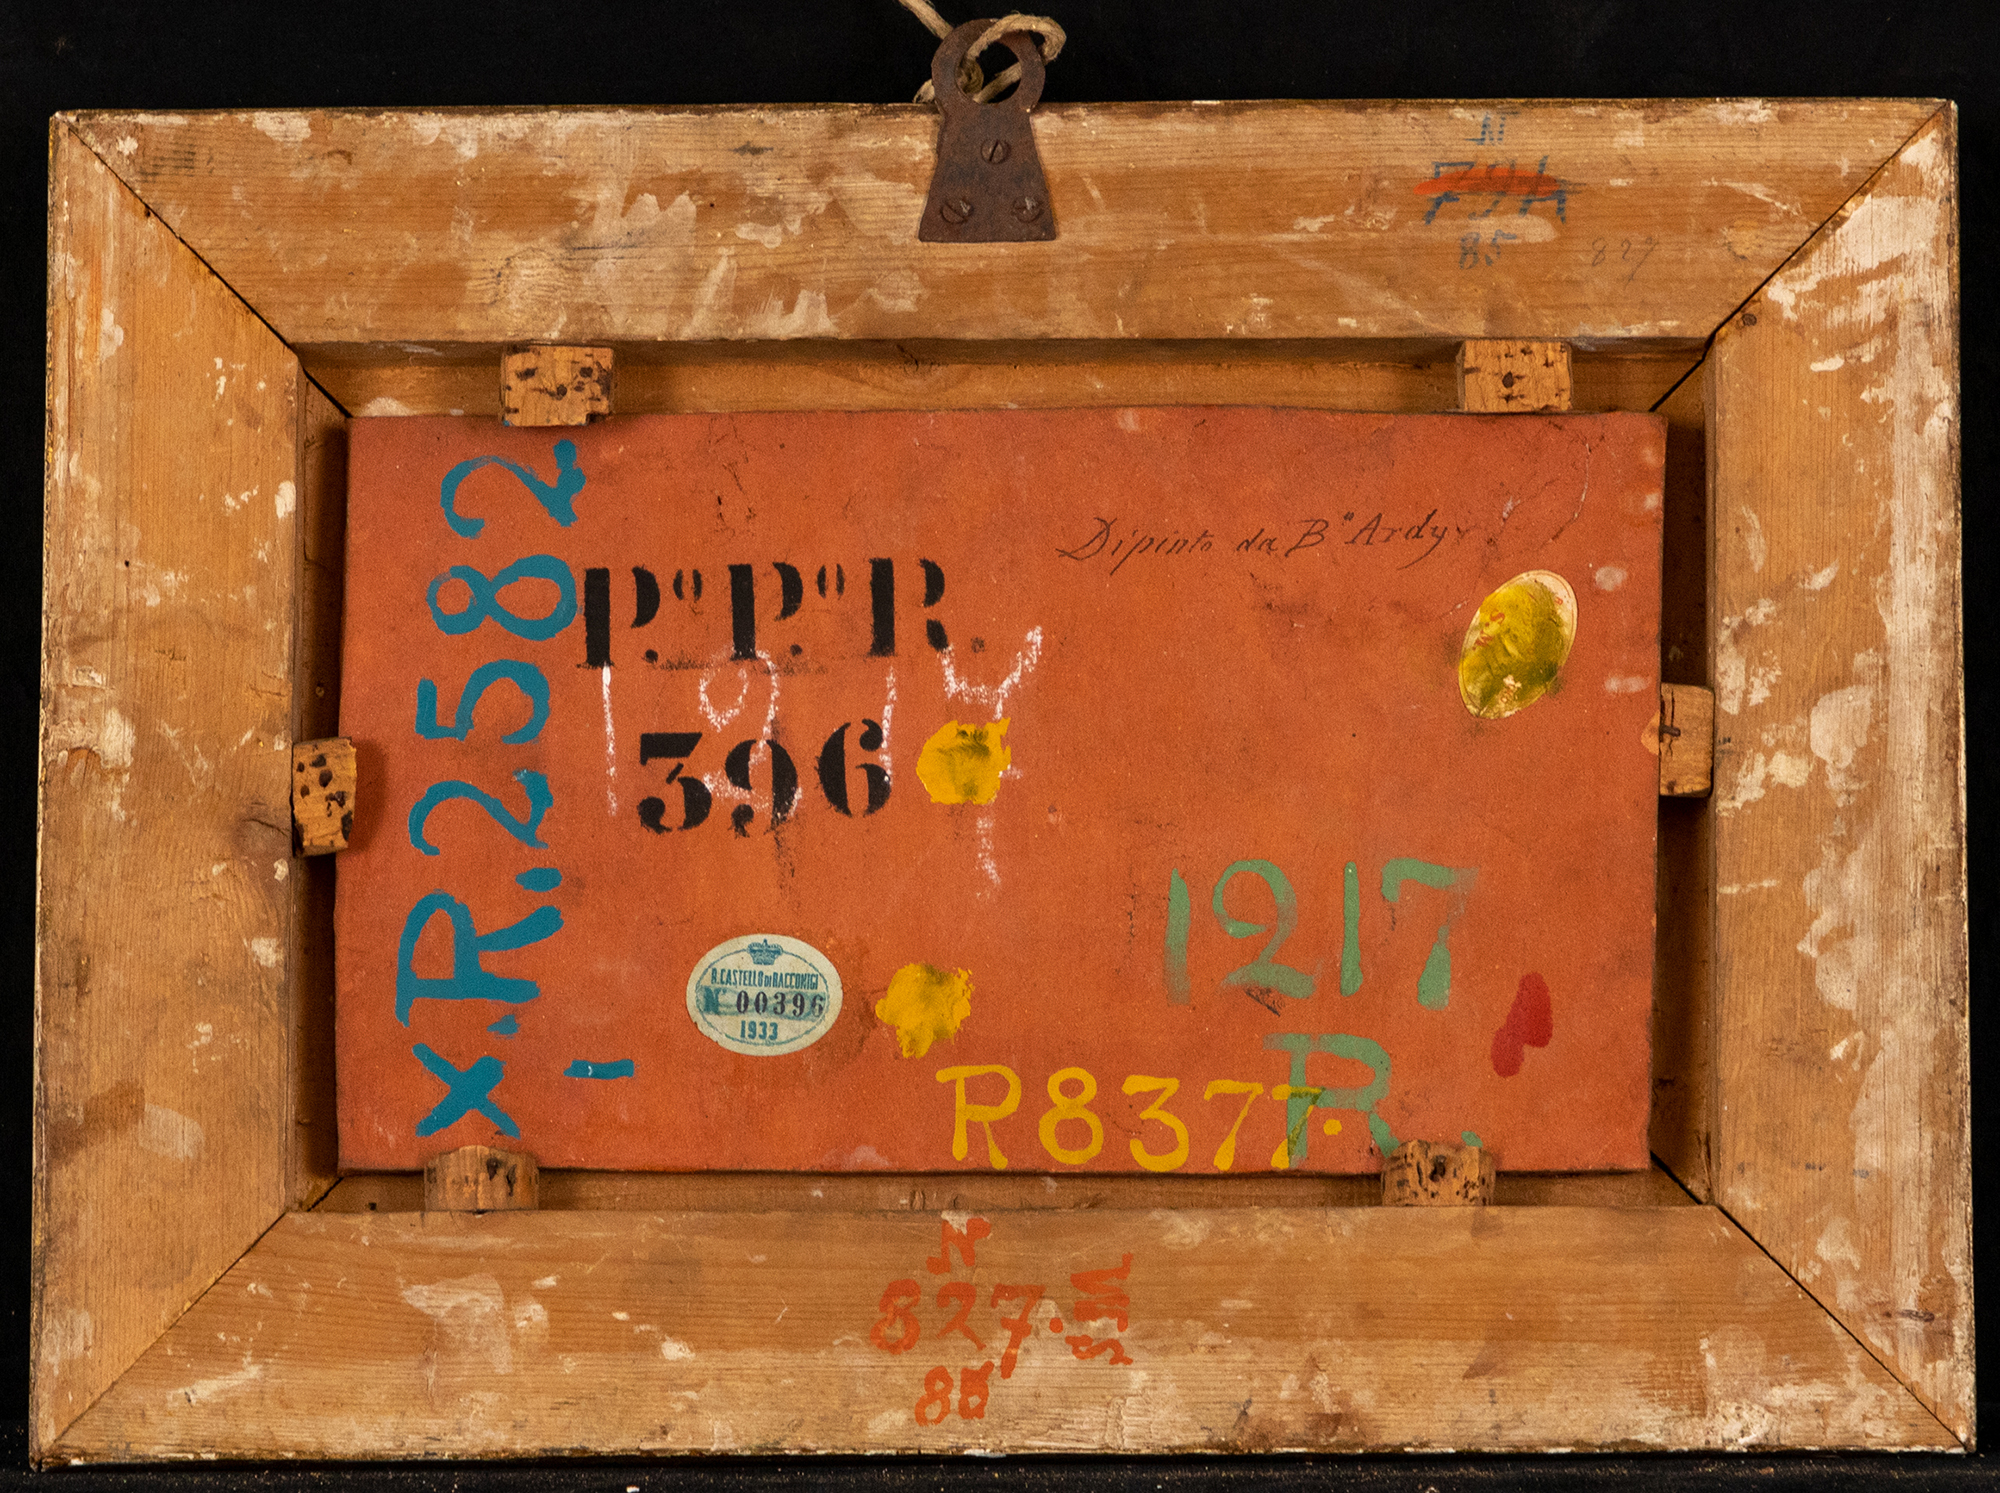 N
79A
85
827
Dipinto da Bª Ardy
P.º P.º R.
1914
396
x.R.2582
1217
R.
R. CASTELLO DI RACCONIGI
N 00396
1933
R8377.
N
827.
85